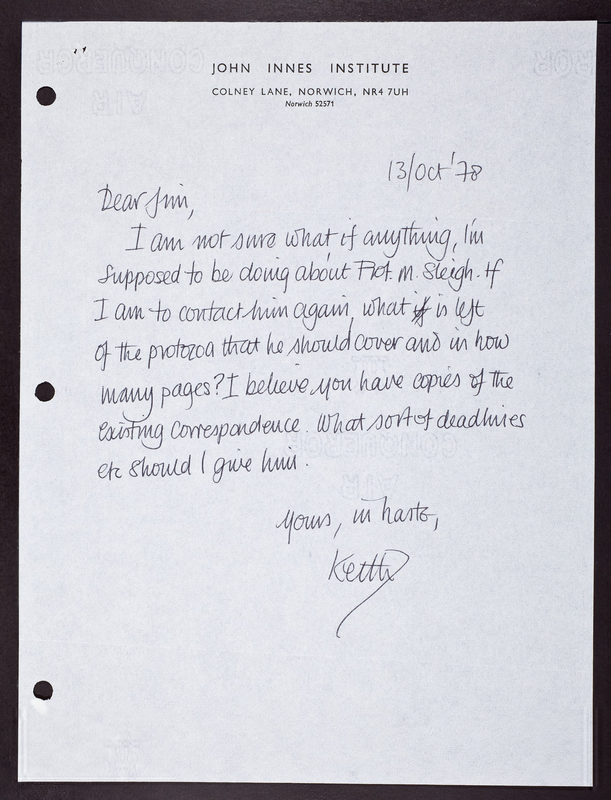 JOHN INNES INSTITUTE
COLNEY LANE, NORWICH, NR4 7UH
Norwich 52571
13/Oct '78
Dear Jim,
I am not sure what if anything, I'm
supposed to be doing about Prof. M. Sleigh. If
I am to contact him again, what is left
of the protozoa that he should cover and in how
many pages? I believe you have copies of the
existing correspondence. What sort of deadlines
etc should I give him.
Yours, in haste,
Keith
CONQUEROR
AIR
CONQUEROR
AIR